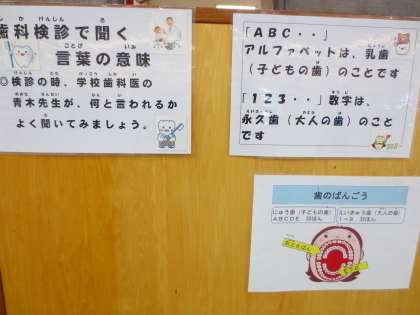 歯科検診で聞く
言葉の意味
◎検診の時、学校歯科医の
青木先生が、何と言われるか
よく聞いてみましょう。
「ABC・・」
アルファベットは、乳歯
(子どもの歯)のことです
「123・・」数字は、
永久歯(大人の歯)のこと
です
歯のばんごう
にゅう歯(子どもの歯)
ABCDE 20ほん
えいきゅう歯(大人の歯)
1~8